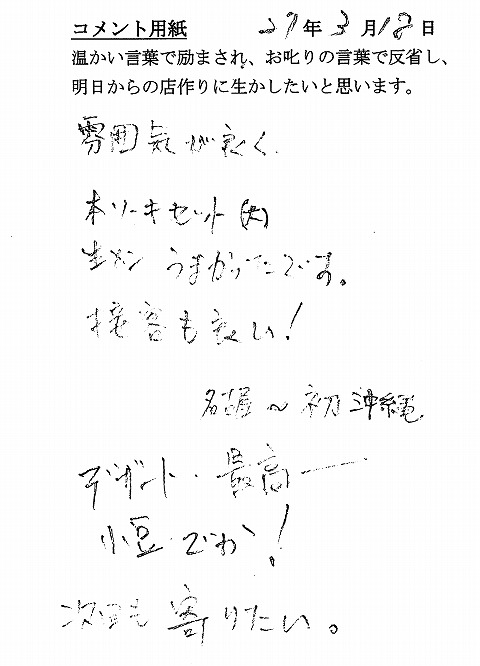 コメント用紙 27年3月18日
温かい言葉で励まされ、お叱りの言葉で反省し、
明日からの店作りに生かしたいと思います。
雰囲気が良く
本ソーキセット(大)
生メン うまかったです。
接客も良い!
名古屋~初沖縄
デザート・最高ー
小豆・でか!
次回も寄りたい。